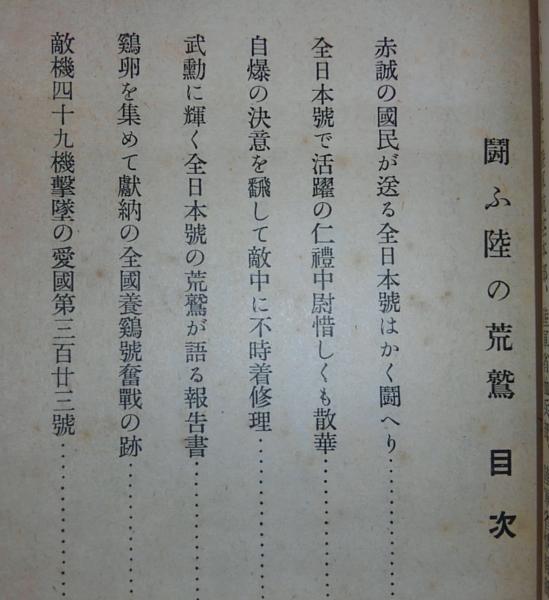 闘ふ陸の荒鷲 目次
赤誠の國民が送る全日本號はかく闘へり
全日本號で活躍の仁禮中尉惜しくも散華
自爆の決意を飜して敵中に不時着修理
武勳に輝く全日本號の荒鷲が語る報告書
鷄卵を集めて獻納の全國養鷄號奮戰の跡
敵機四十九機擊墜の愛國第三百廿三號